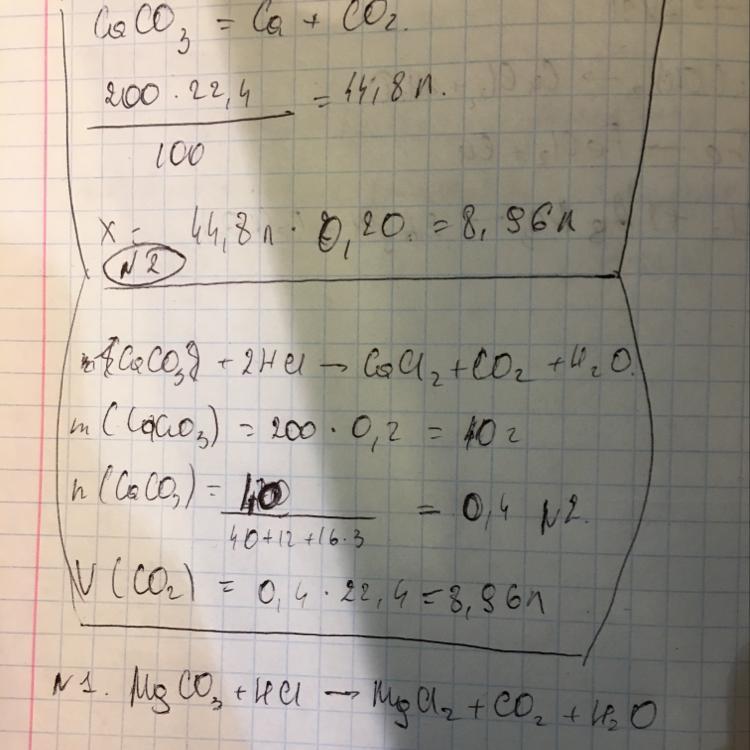 CaCO₃ = Ca + CO₂.
200 · 22,4 / 100 = 44,8 л.
x = 44,8 л · 0,20. = 8,96 л
№2
{CaCO₃} + 2HCl → CaCl₂ + CO₂ + H₂O.
m (CaCO₃) = 200 · 0,2 = 40 г
n (CaCO₃) = 40 / 40+12+16·3 = 0,4 №2.
V (CO₂) = 0,4 · 22,4 = 8,96 л
№1. MgCO₃ + HCl → MgCl₂ + CO₂ + H₂O